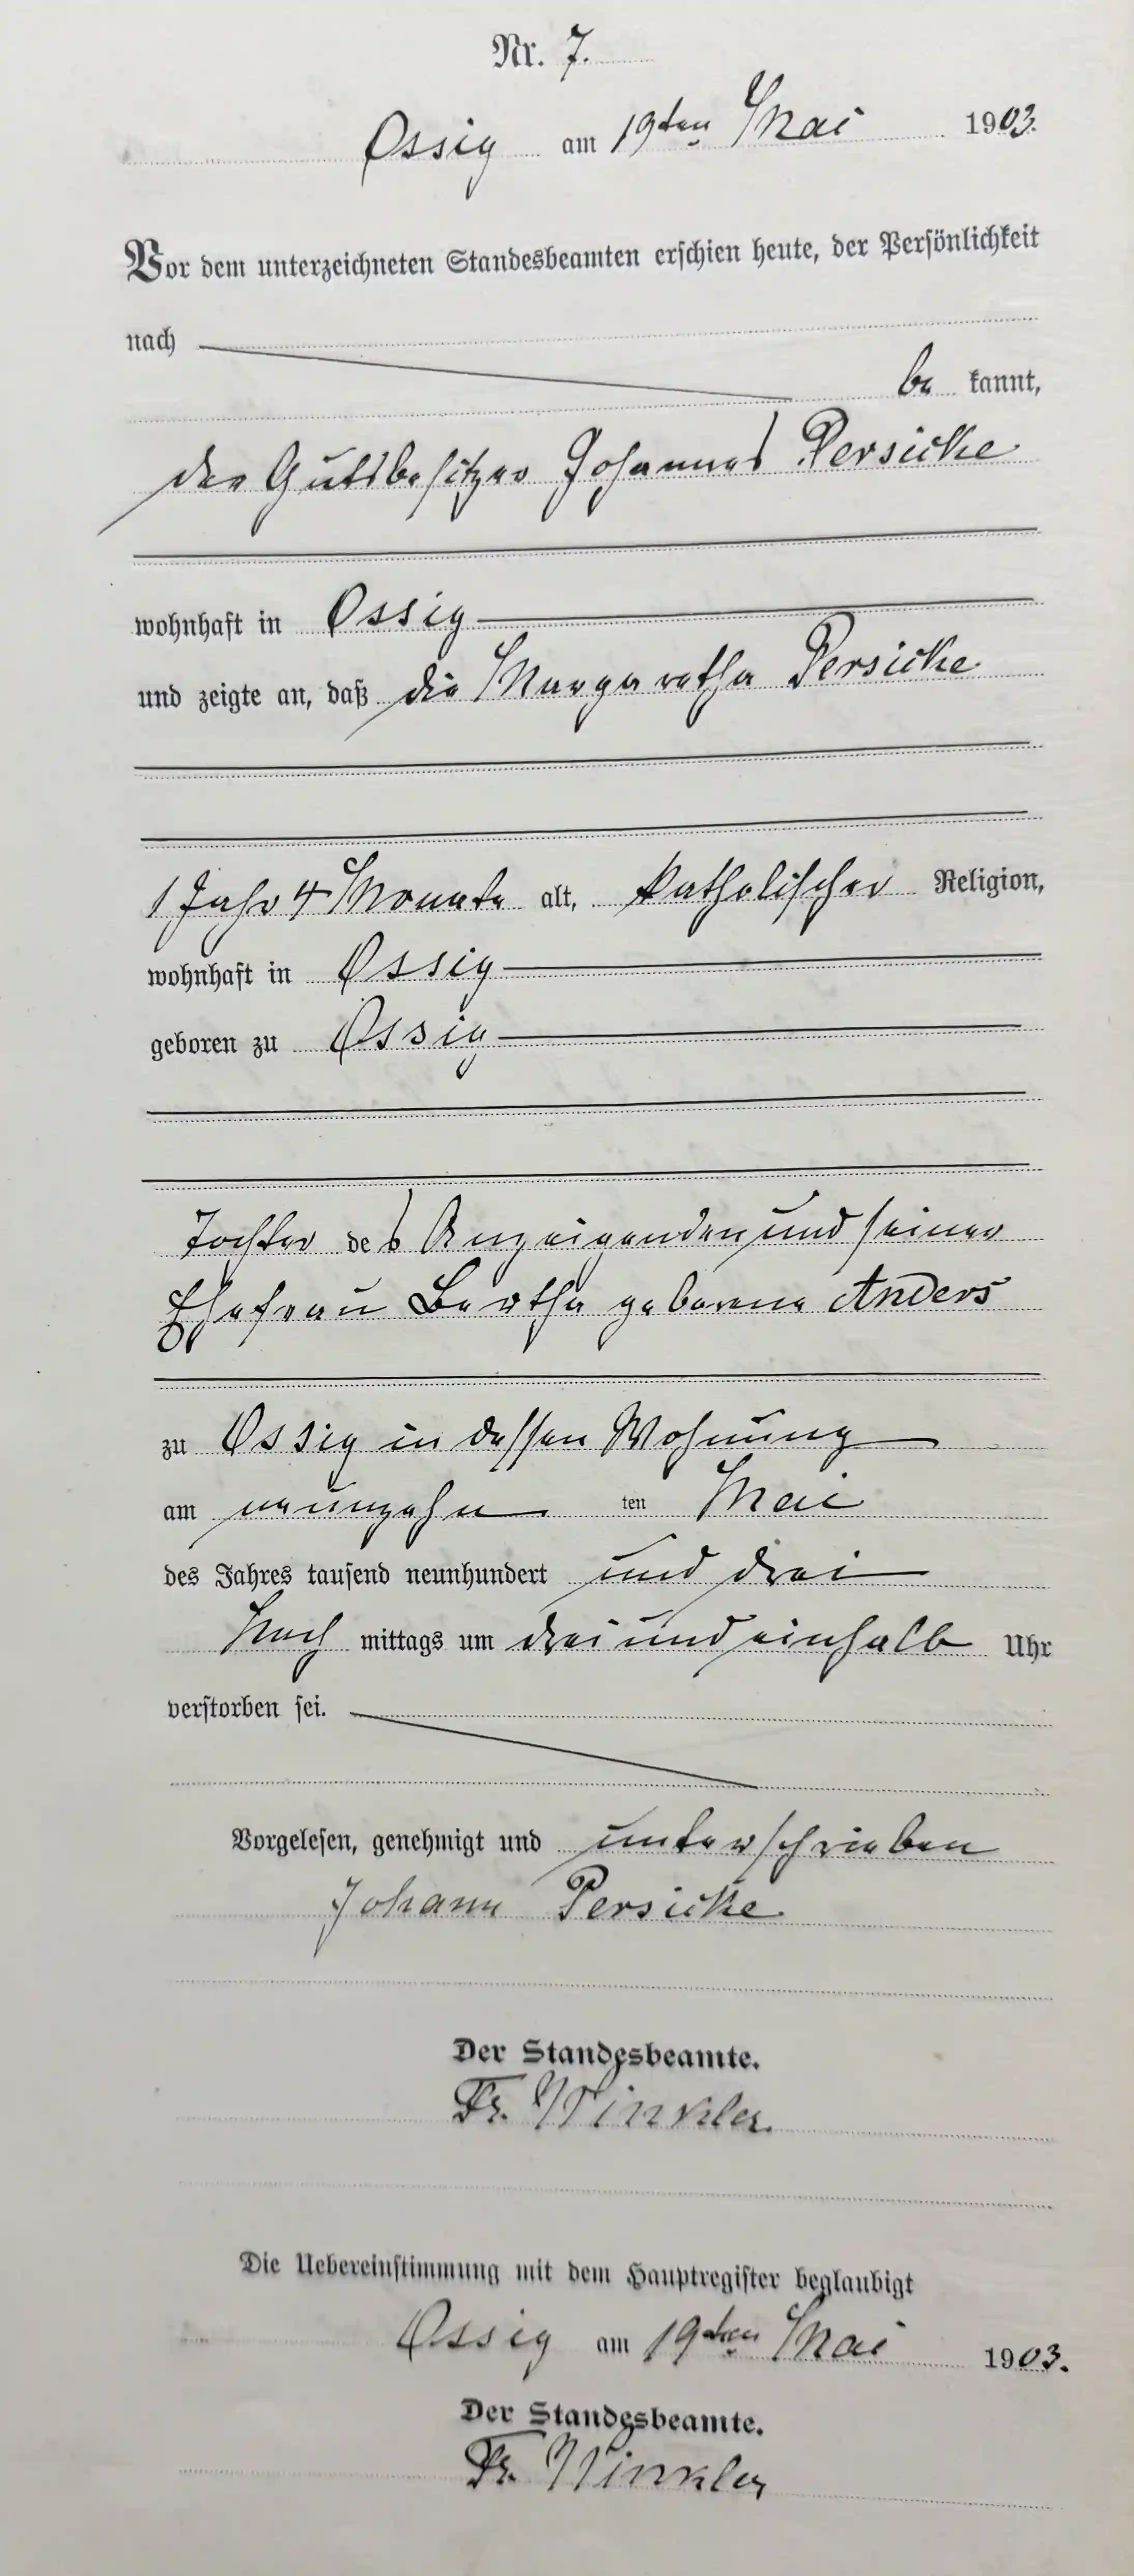 Nr. 7.
Ossig am 19ten Mai 1903.
Vor dem unterzeichneten Standesbeamten erschien heute, der Persönlichkeit
nach
be kannt,
der Gutsbesitzer Johannes Persicke
wohnhaft in Ossig
und zeigte an, daß die Margaretha Persicke
1 Jahr 4 Monate alt, katholischer Religion,
wohnhaft in Ossig
geboren zu Ossig
Tochter des Anzeigenden und seiner
Ehefrau Bertha geborene Anders
zu Ossig in dessen Wohnung
am neunzehn ten Mai
des Jahres tausend neunhundert und drei
Nach mittags um drei und einhalb Uhr
verstorben sei.
Vorgelesen, genehmigt und unterschrieben
Johann Persicke
Der Standesbeamte.
Fr. Winkler.
Die Uebereinstimmung mit dem Hauptregister beglaubigt
Ossig am 19ten Mai 1903.
Der Standesbeamte.
Fr. Winkler